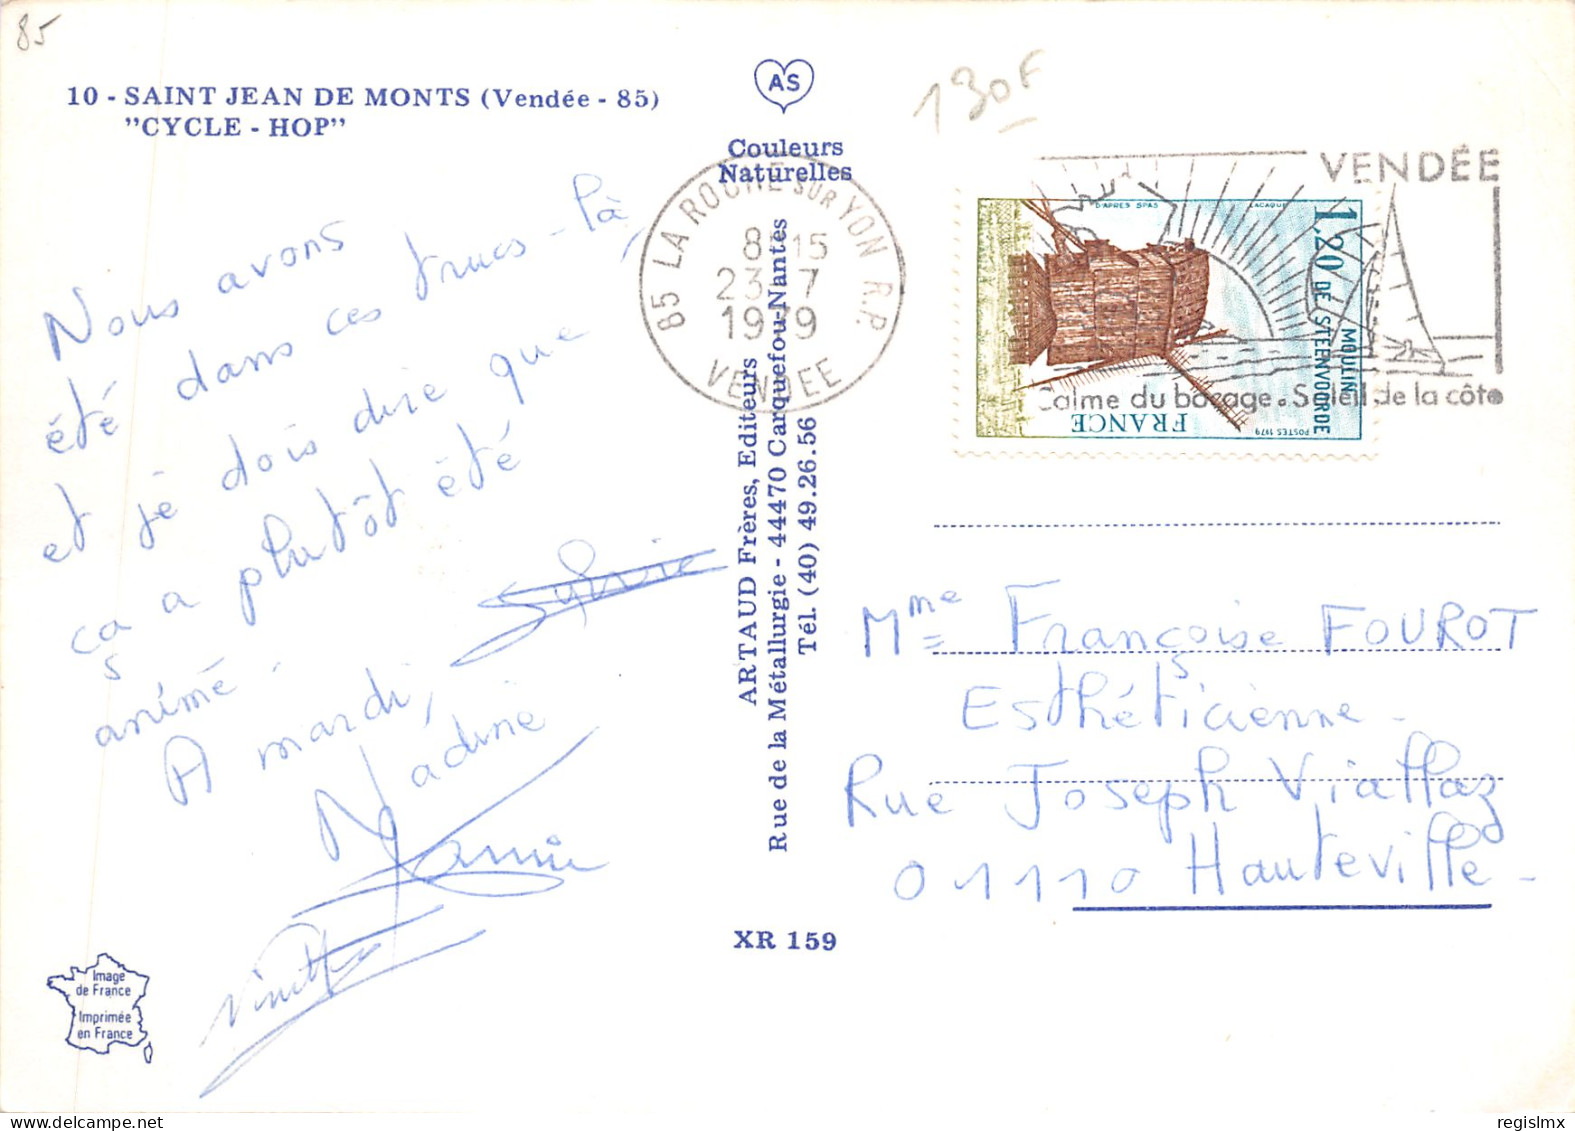 85
10 - SAINT JEAN DE MONTS (Vendée - 85)
"CYCLE - HOP"
AS
Couleurs
Naturelles
130F
85 LA ROCHE SUR YON R.P.
8H15
23-7
1979
VENDEE
VENDÉE
Calme du bocage. Soleil de la côte
D'APRES SPAS
LACAQUE
1,20
MOULIN
DE STEENVOORDE
FRANCE
POSTES 1979
Nous avons
été dans ces trucs-là,
et je dois dire que
ça a plutôt été
animé.
A mardi,
Sylvie
Nadine
ARTAUD Frères, Editeurs
Rue de la Métallurgie - 44470 Carquefou-Nantes
Tél. (40) 49.26.56
XR 159
Mme Françoise FOUROT
Esthéticienne -
Rue Joseph Viallaz
01110 Hauteville -
Image
de France
Imprimée
en France
regislmx